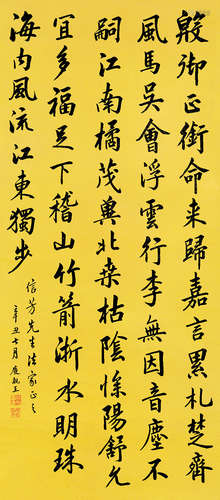 殷御正銜命来歸嘉言累札楚齊
風馬吳會浮雲行李無因音塵不
嗣江南橘茂冀北桑枯陰慘陽舒允
宜多福足下稽山竹箭淅水明珠
海内風流江東獨步
信芳先生法家正之
辛丑七月